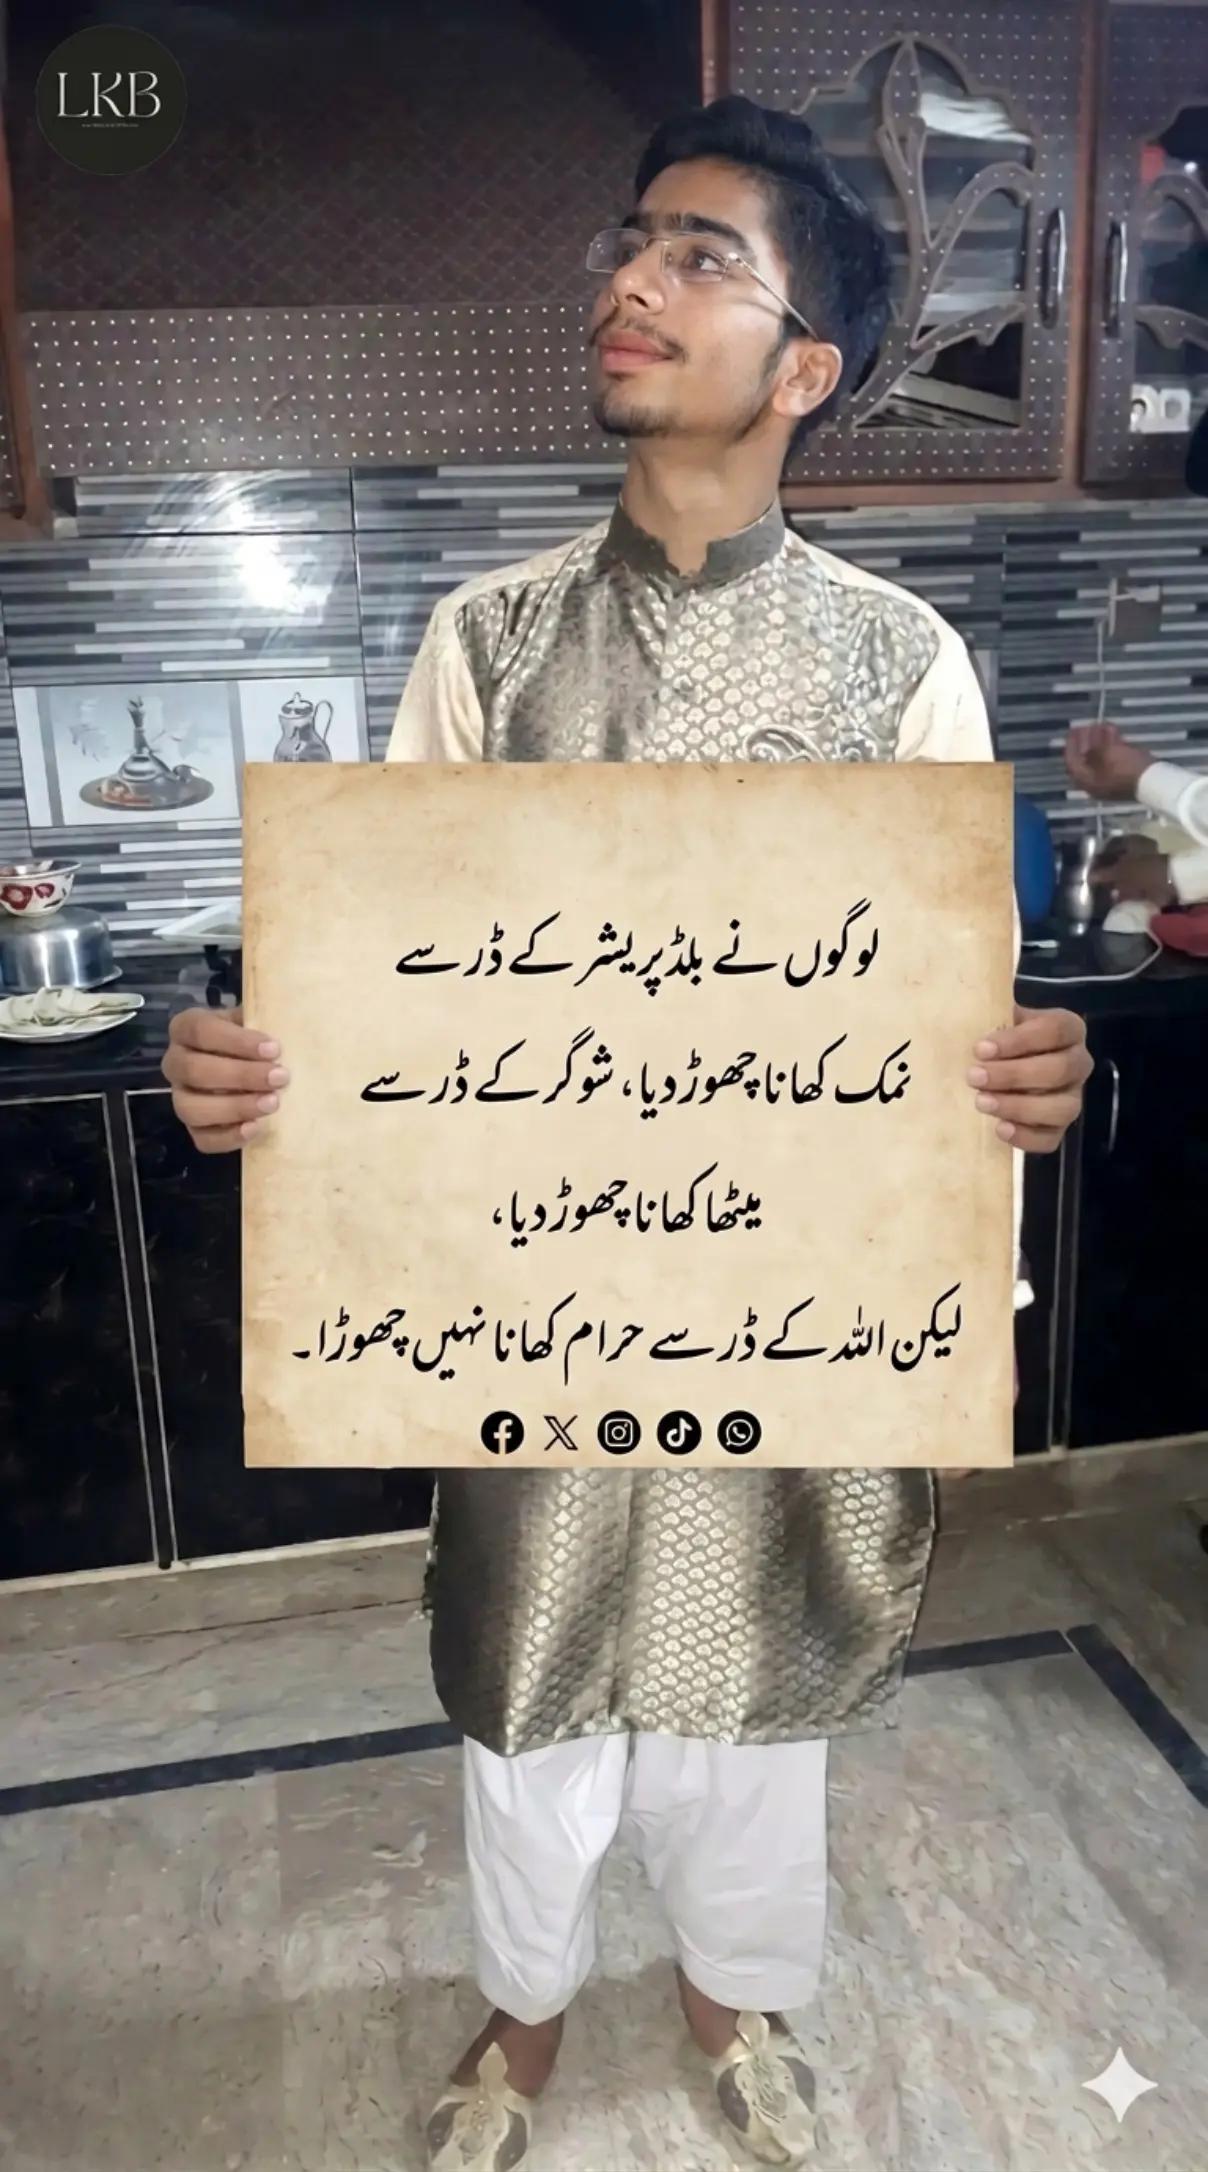 LKB
لوگوں نے بلڈپریشر کے ڈر سے
نمک کھانا چھوڑ دیا، شوگر کے ڈر سے
میٹھا کھانا چھوڑ دیا،
لیکن اللہ کے ڈر سے حرام کھانا نہیں چھوڑا۔